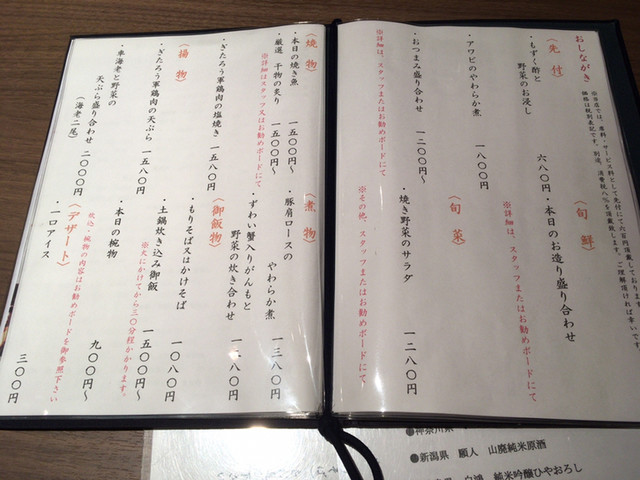 おしながき
※当店では、席料・サービス料として先付にて六百円頂戴しております。
価格は税別表記です。別途、消費税八%を頂戴致します。ご理解頂ければ幸いです。
〈先付〉
・もずく酢と
野菜のお浸し
六八〇円
・アワビのやわらか煮
一八〇〇円
・おつまみ盛り合わせ
一二〇〇円〜
※詳細は、スタッフまたはお勧めボードにて
〈旬鮮〉
・本日のお造り盛り合わせ
※詳細は、スタッフまたはお勧めボードにて
〈旬菜〉
・焼き野菜のサラダ
一二八〇円
※その他、スタッフまたはお勧めボードにて
〈焼物〉
・本日の焼き魚
一五〇〇円〜
・厳選 干物の炙り
一五〇〇円〜
※詳細はスタッフ又はお勧めボードにて
・ぎたろう軍鶏肉の塩焼き
一五八〇円
〈揚物〉
・ぎたろう軍鶏肉の天ぷら
一五八〇円
・車海老と野菜の
天ぷら盛り合わせ
二〇〇〇円
(海老二尾)
〈煮物〉
・豚肩ロースの
やわらか煮
一三八〇円
・ずわい蟹入りがんもと
野菜の炊き合わせ
一三八〇円
〈御飯物〉
・もりそば又はかけそば
一〇八〇円
・土鍋炊き込み御飯
一五〇〇円〜
※火にかけてから三〇分程かかります。
・本日の椀物
九〇〇円〜
炊込・椀物の内容はお勧めボードを御参照下さい
〈デザート〉
・一口アイス
三〇〇円
●神奈川県
●新潟県 願人 山廃純米原酒
純米吟醸ひやおろし